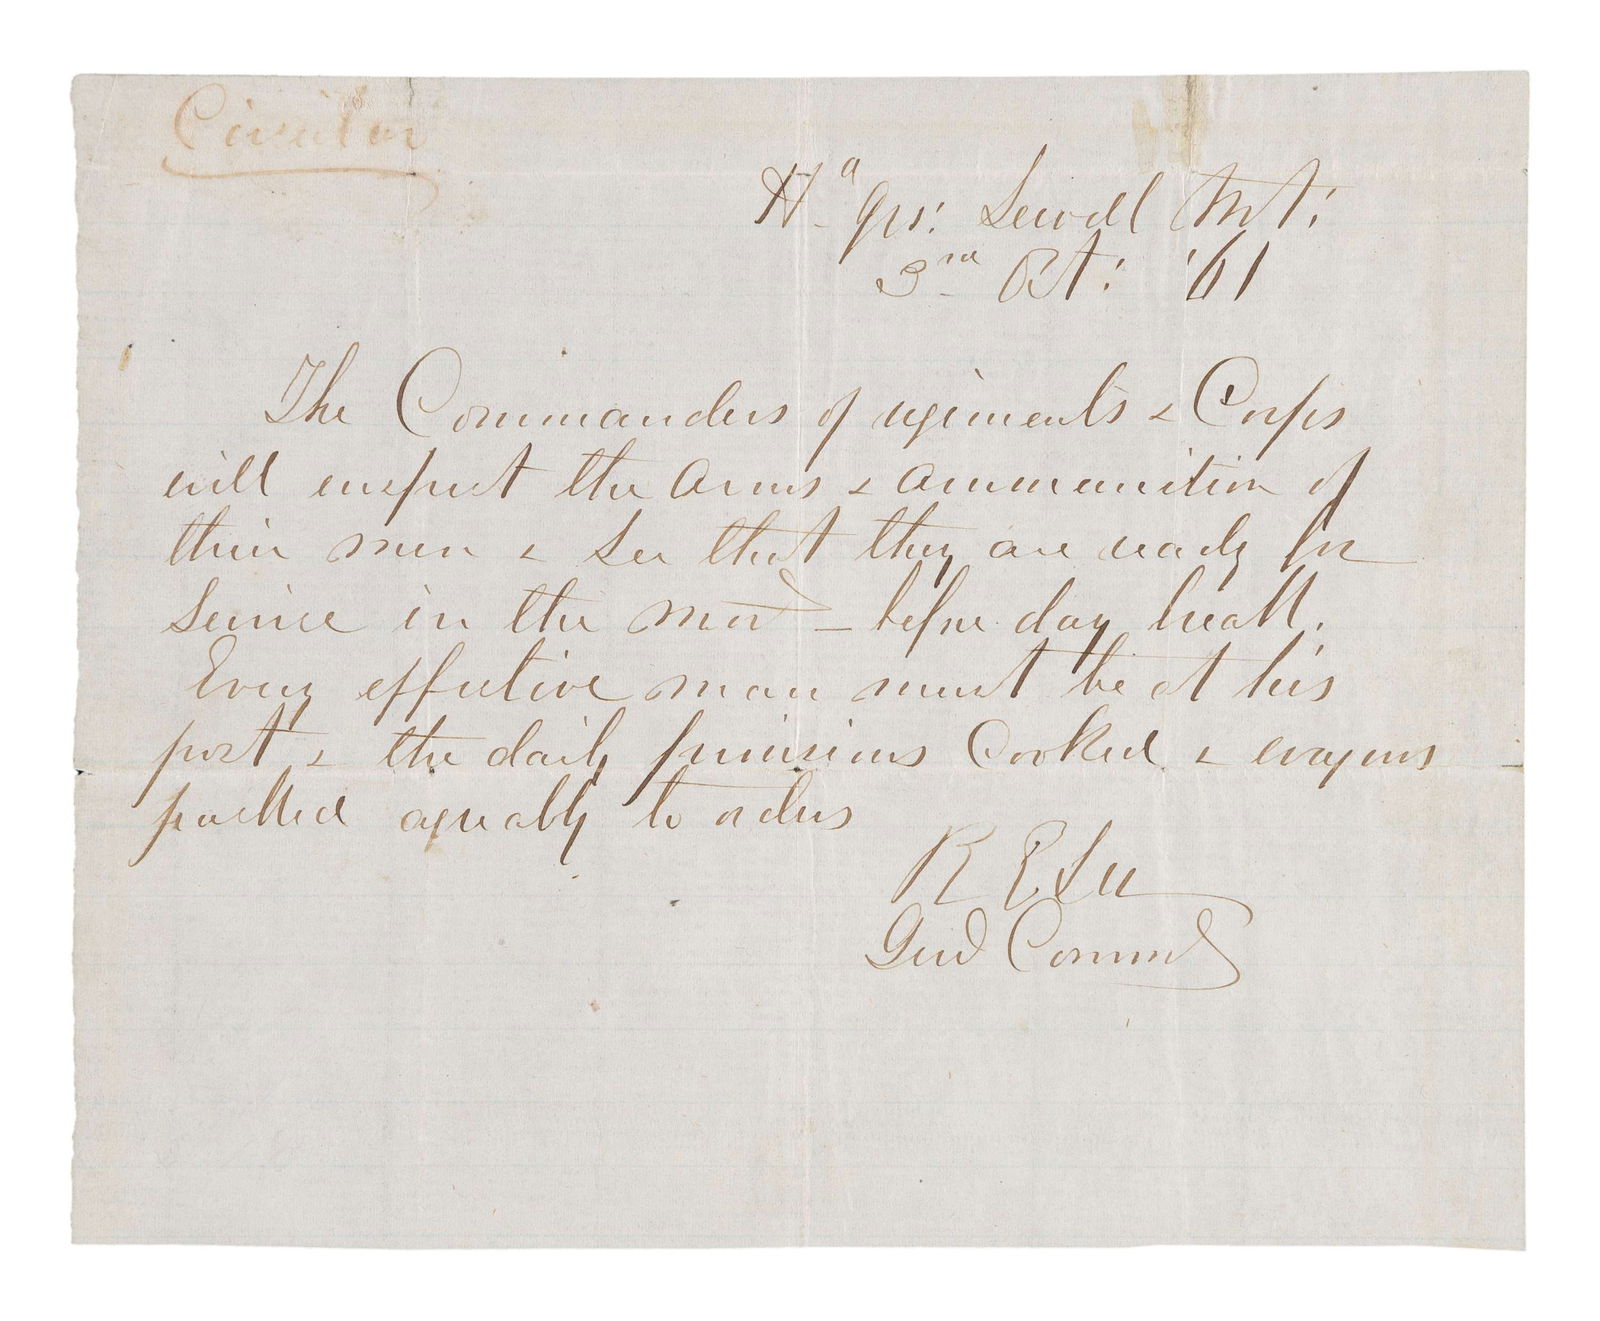 Circular
Hd Qrs: Sewell Mt:
3rd Oct: '61
The Commanders of regiments & Corps
will inspect the arms & ammunition of
their men & see that they are ready for
service in the mor'g – before day break.
Every effective man must be at his
post & the daily provisions Cooked & wagons
packed agreeably to orders
R E Lee
Genl Commdg